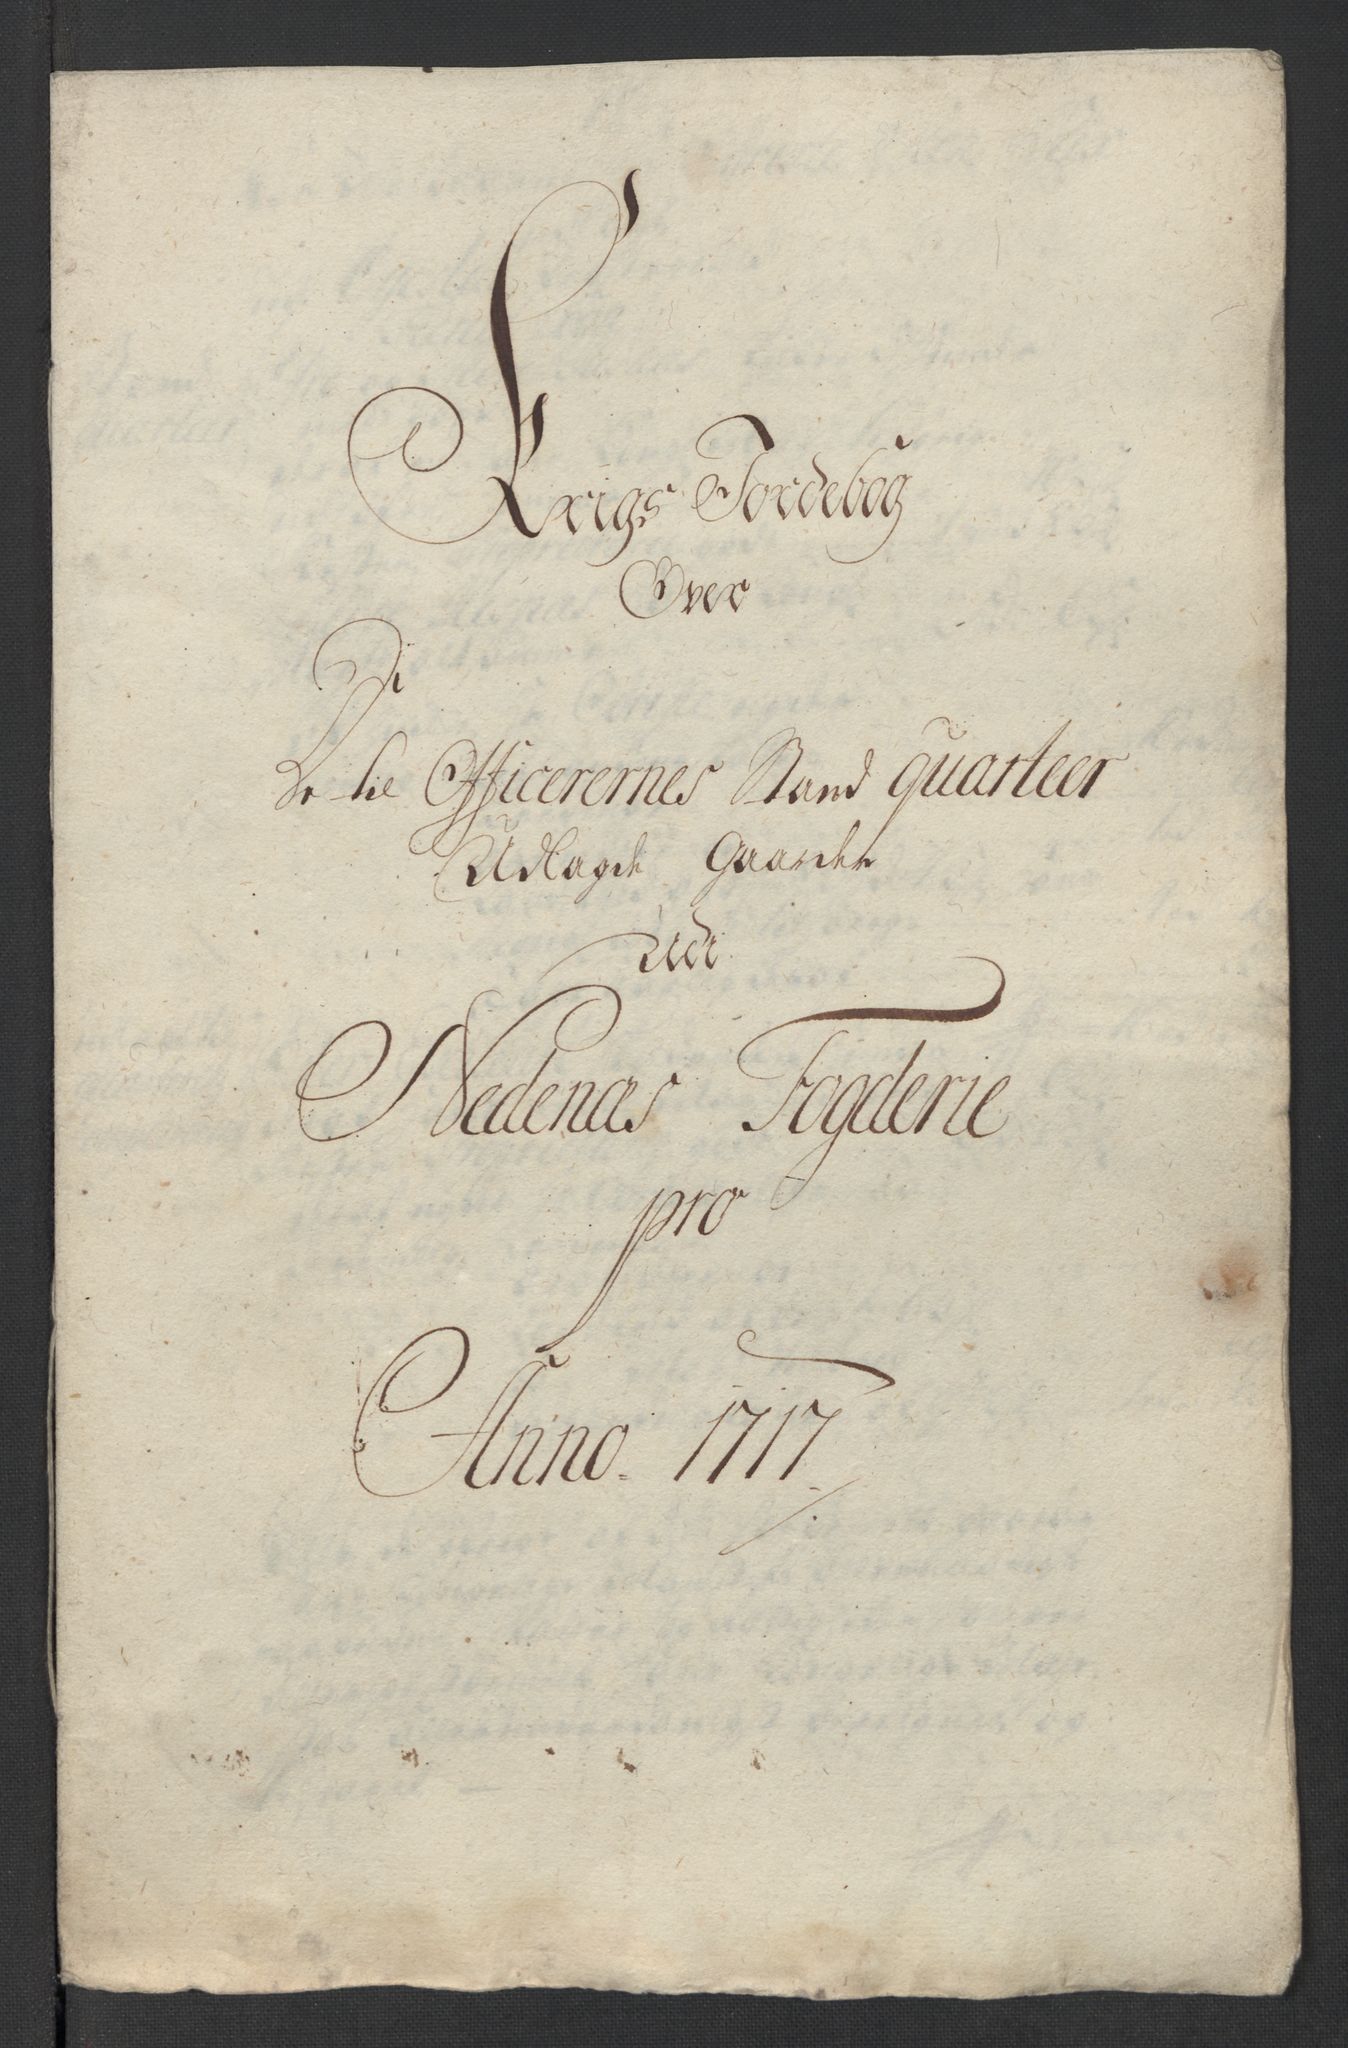 Krigs Jordebog
Over
De
til Officerernes Stand quarteer
Udlagde Gaarder
Udi
Nedenæs Fogderie
pro
Anno 1717